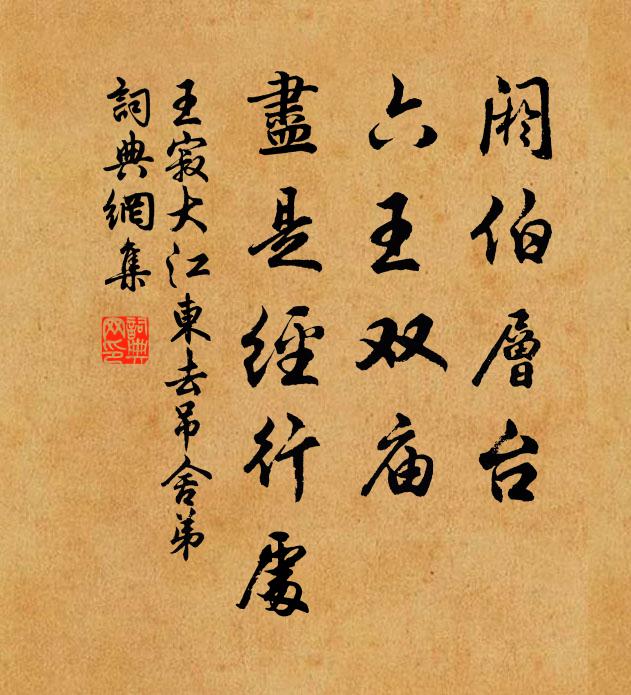 阏伯層台
六王双庙
盡是經行處
王寂大江東去吊舍弟
詞典網集
詞典网印